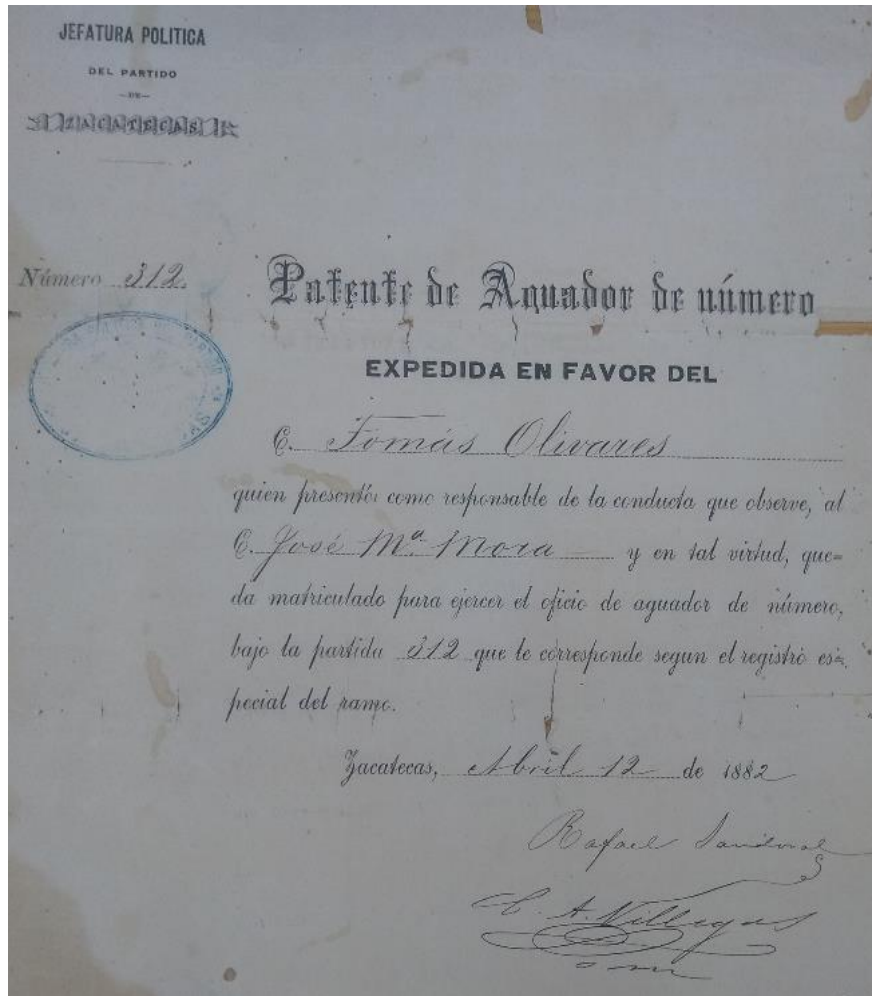 JEFATURA POLITICA
DEL PARTIDO
—DE—
ZACATECAS
Número 312.
Patente de Aguador de número
EXPEDIDA EN FAVOR DEL
C. Tomás Olivares
quien presentó como responsable de la conducta que observe, al
C. José Mª Mora y en tal virtud, que=
da matriculado para ejercer el oficio de aguador de número,
bajo la partida 312 que le corresponde segun el registro es=
pecial del ramo.
Zacatecas, Abril 12 de 1882
Rafael Sandoval
A. Villegas